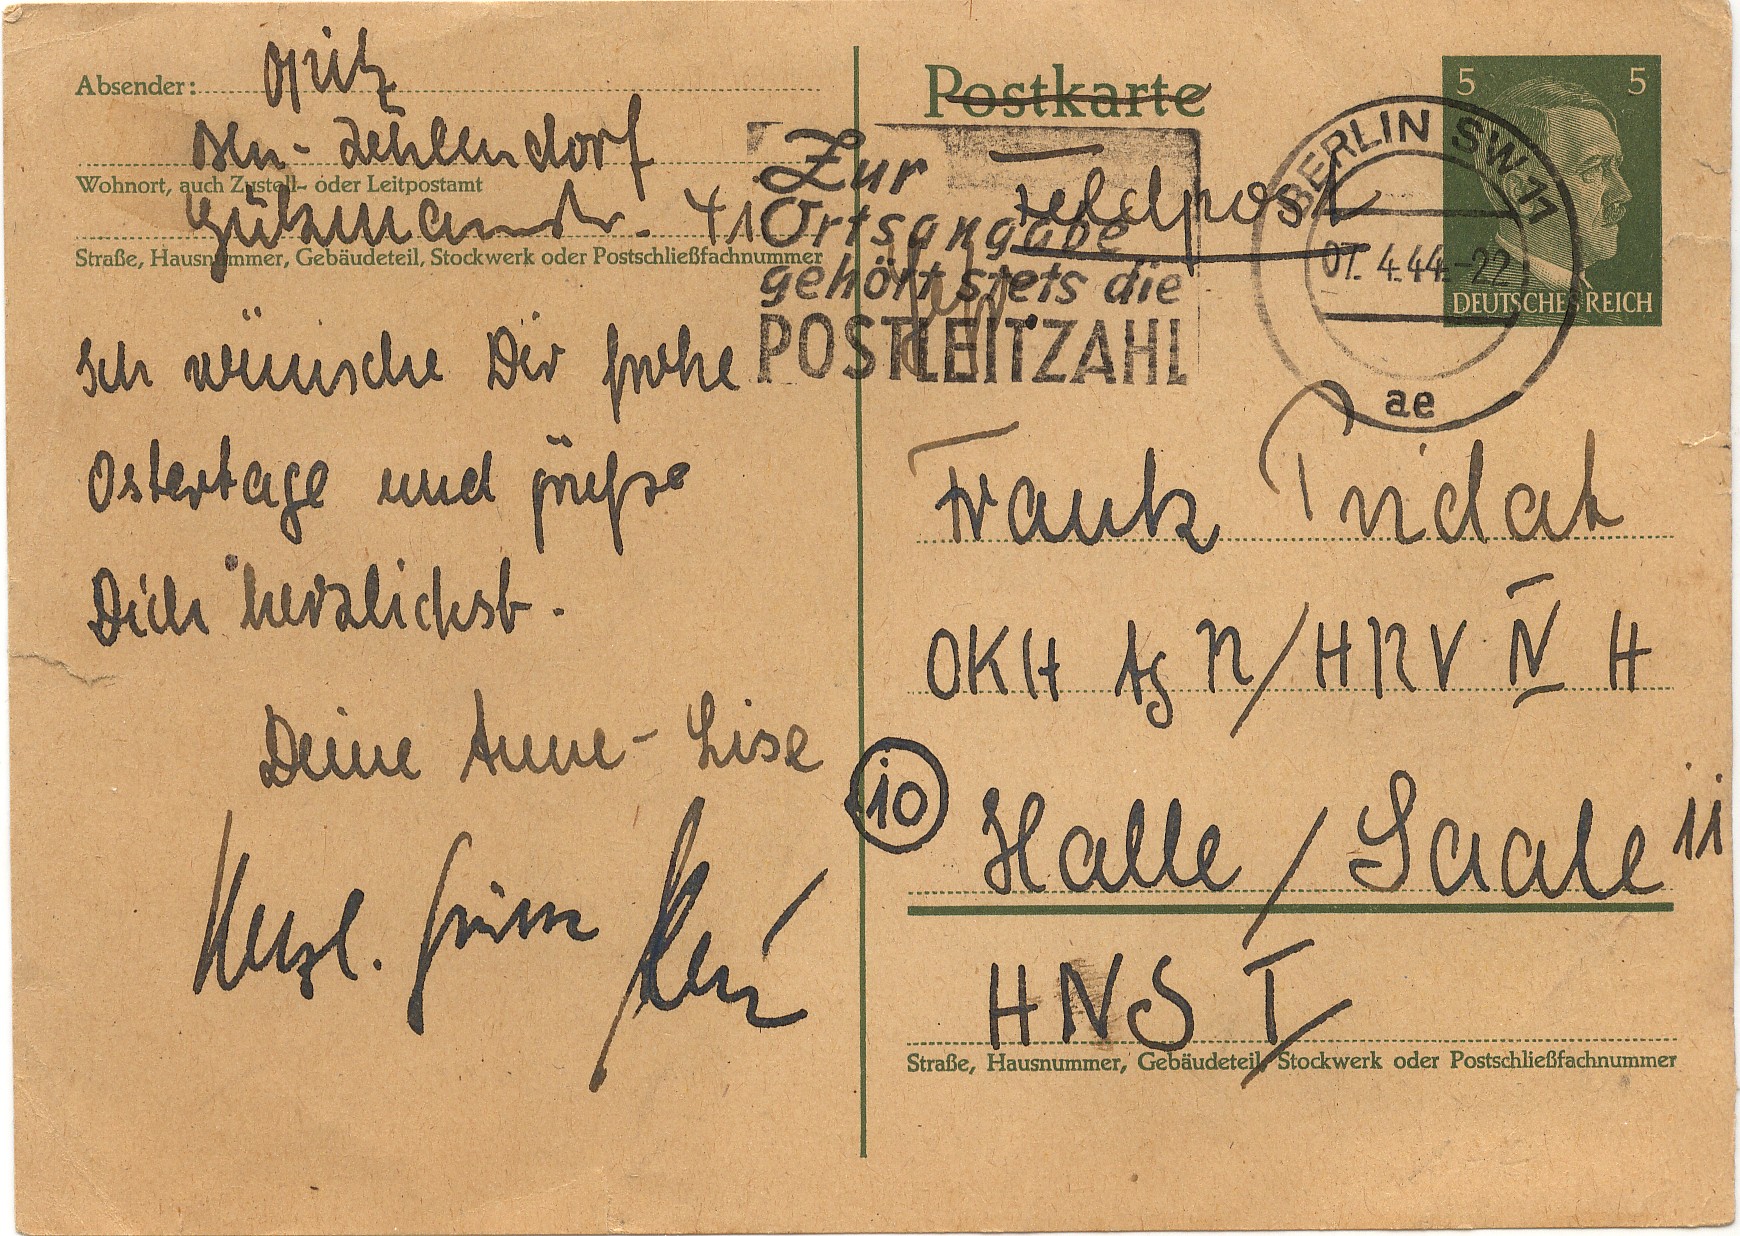 Absender: Opitz
Bln-Zehlendorf
Wohnort, auch Zustell- oder Leitpostamt
41
Straße, Hausnummer, Gebäudeteil, Stockwerk oder Postschließfachnummer
Ich wünsche Dir frohe
Ostertage und grüße
Dich herzlichst.
Deine Anne-Lise
Herzl. Grüsse
Postkarte
Feldpost
Zur
Ortsangabe
gehört stets die
POSTLEITZAHL
BERLIN SW 11
07.4.44.-22
ae
5 5
DEUTSCHES REICH
Frank Pridat
OKH Ag N/HNV IV H
10 Halle/Saale 11
HNS I
Straße, Hausnummer, Gebäudeteil, Stockwerk oder Postschließfachnummer